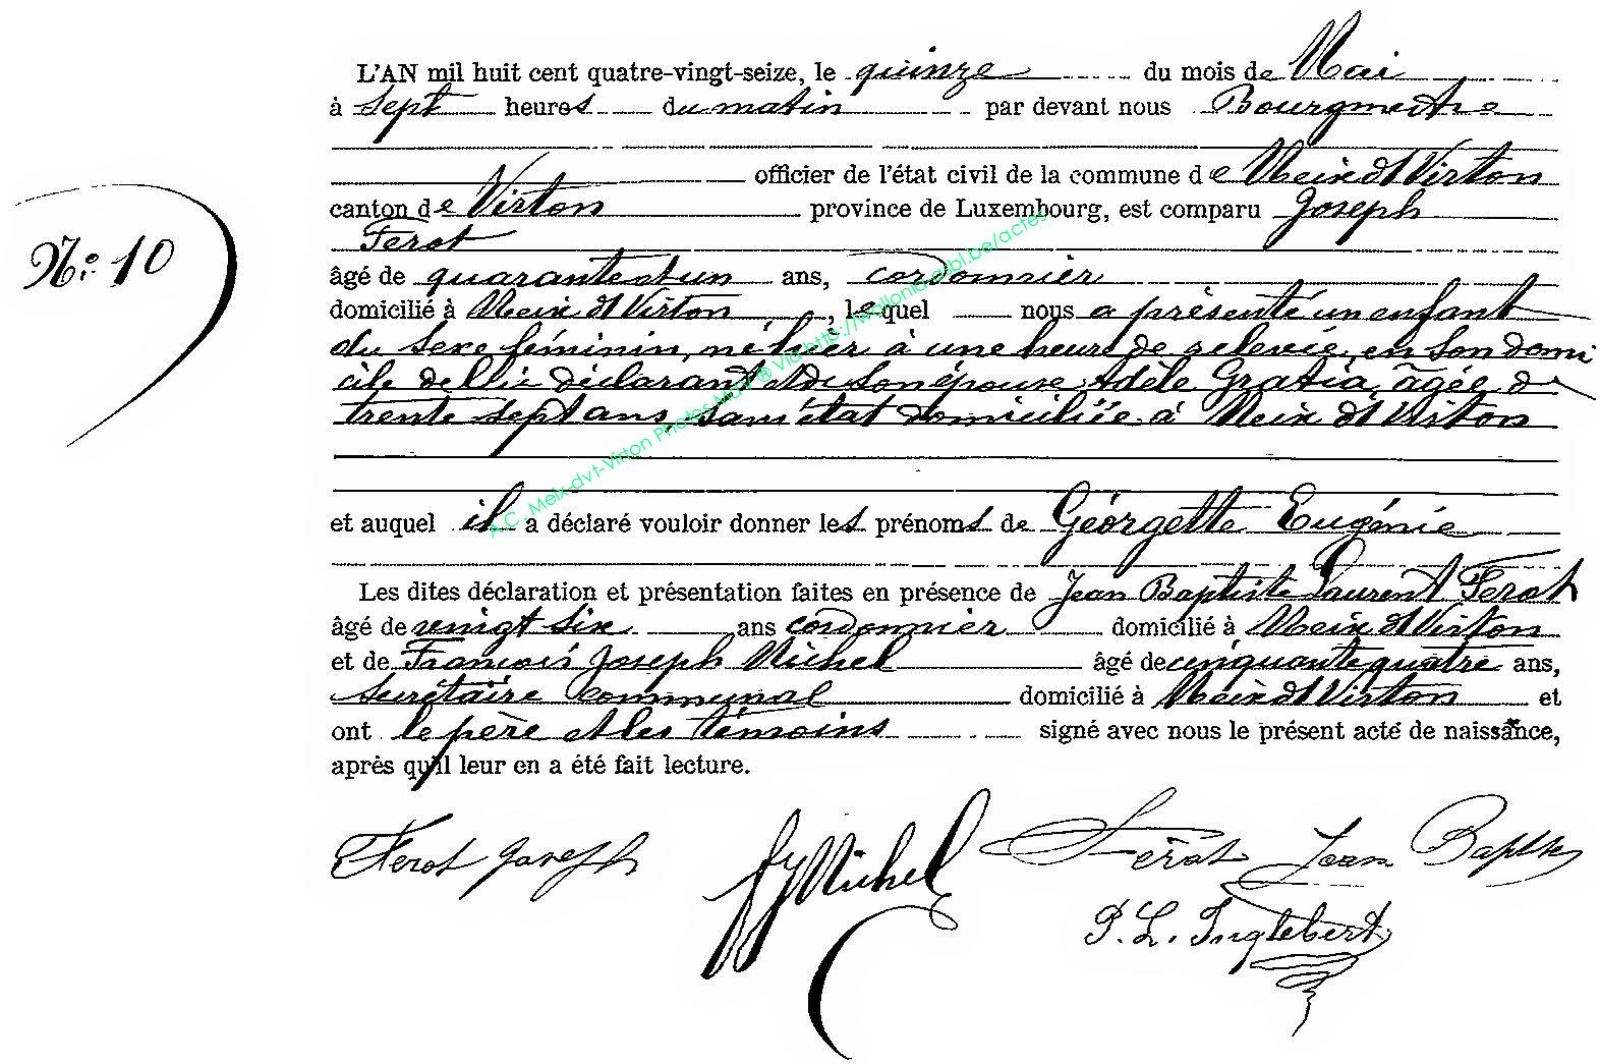 L'AN mil huit cent quatre-vingt-seize, le quinze du mois de Mai
à sept heures du matin par devant nous Bourgmestre
officier de l'état civil de la commune de Meix dt Virton
canton de Virton province de Luxembourg, est comparu Joseph
Ferot
N° 10
âgé de quarante et un ans, cordonnier
domicilié à Meix dt Virton, lequel nous a présenté un enfant
du sexe féminin, né hier à une heure de relevée, en son domi
cile de lui déclarant et de son épouse Adèle Gratia, âgée de
trente sept ans, sans état domiciliée à Meix dt Virton
et auquel il a déclaré vouloir donner les prénoms de Géorgette Eugénie
Les dites déclaration et présentation faites en présence de Jean Baptiste Laurent Ferot
âgé de veingt six ans cordonnier domicilié à Meix dt Virton
et de François Joseph Michel âgé de cinquante quatre ans,
secrétaire communal domicilié à Meix dt Virton et
ont le père et les témoins signé avec nous le présent acte de naissance,
après qu'il leur en a été fait lecture.
Ferot Joseph fJMichel Férot Jean Bapste
P. L. Inglebert
A.C. Meix-dvt-Virton Photos ® Via http://wallonica bl.be/actes